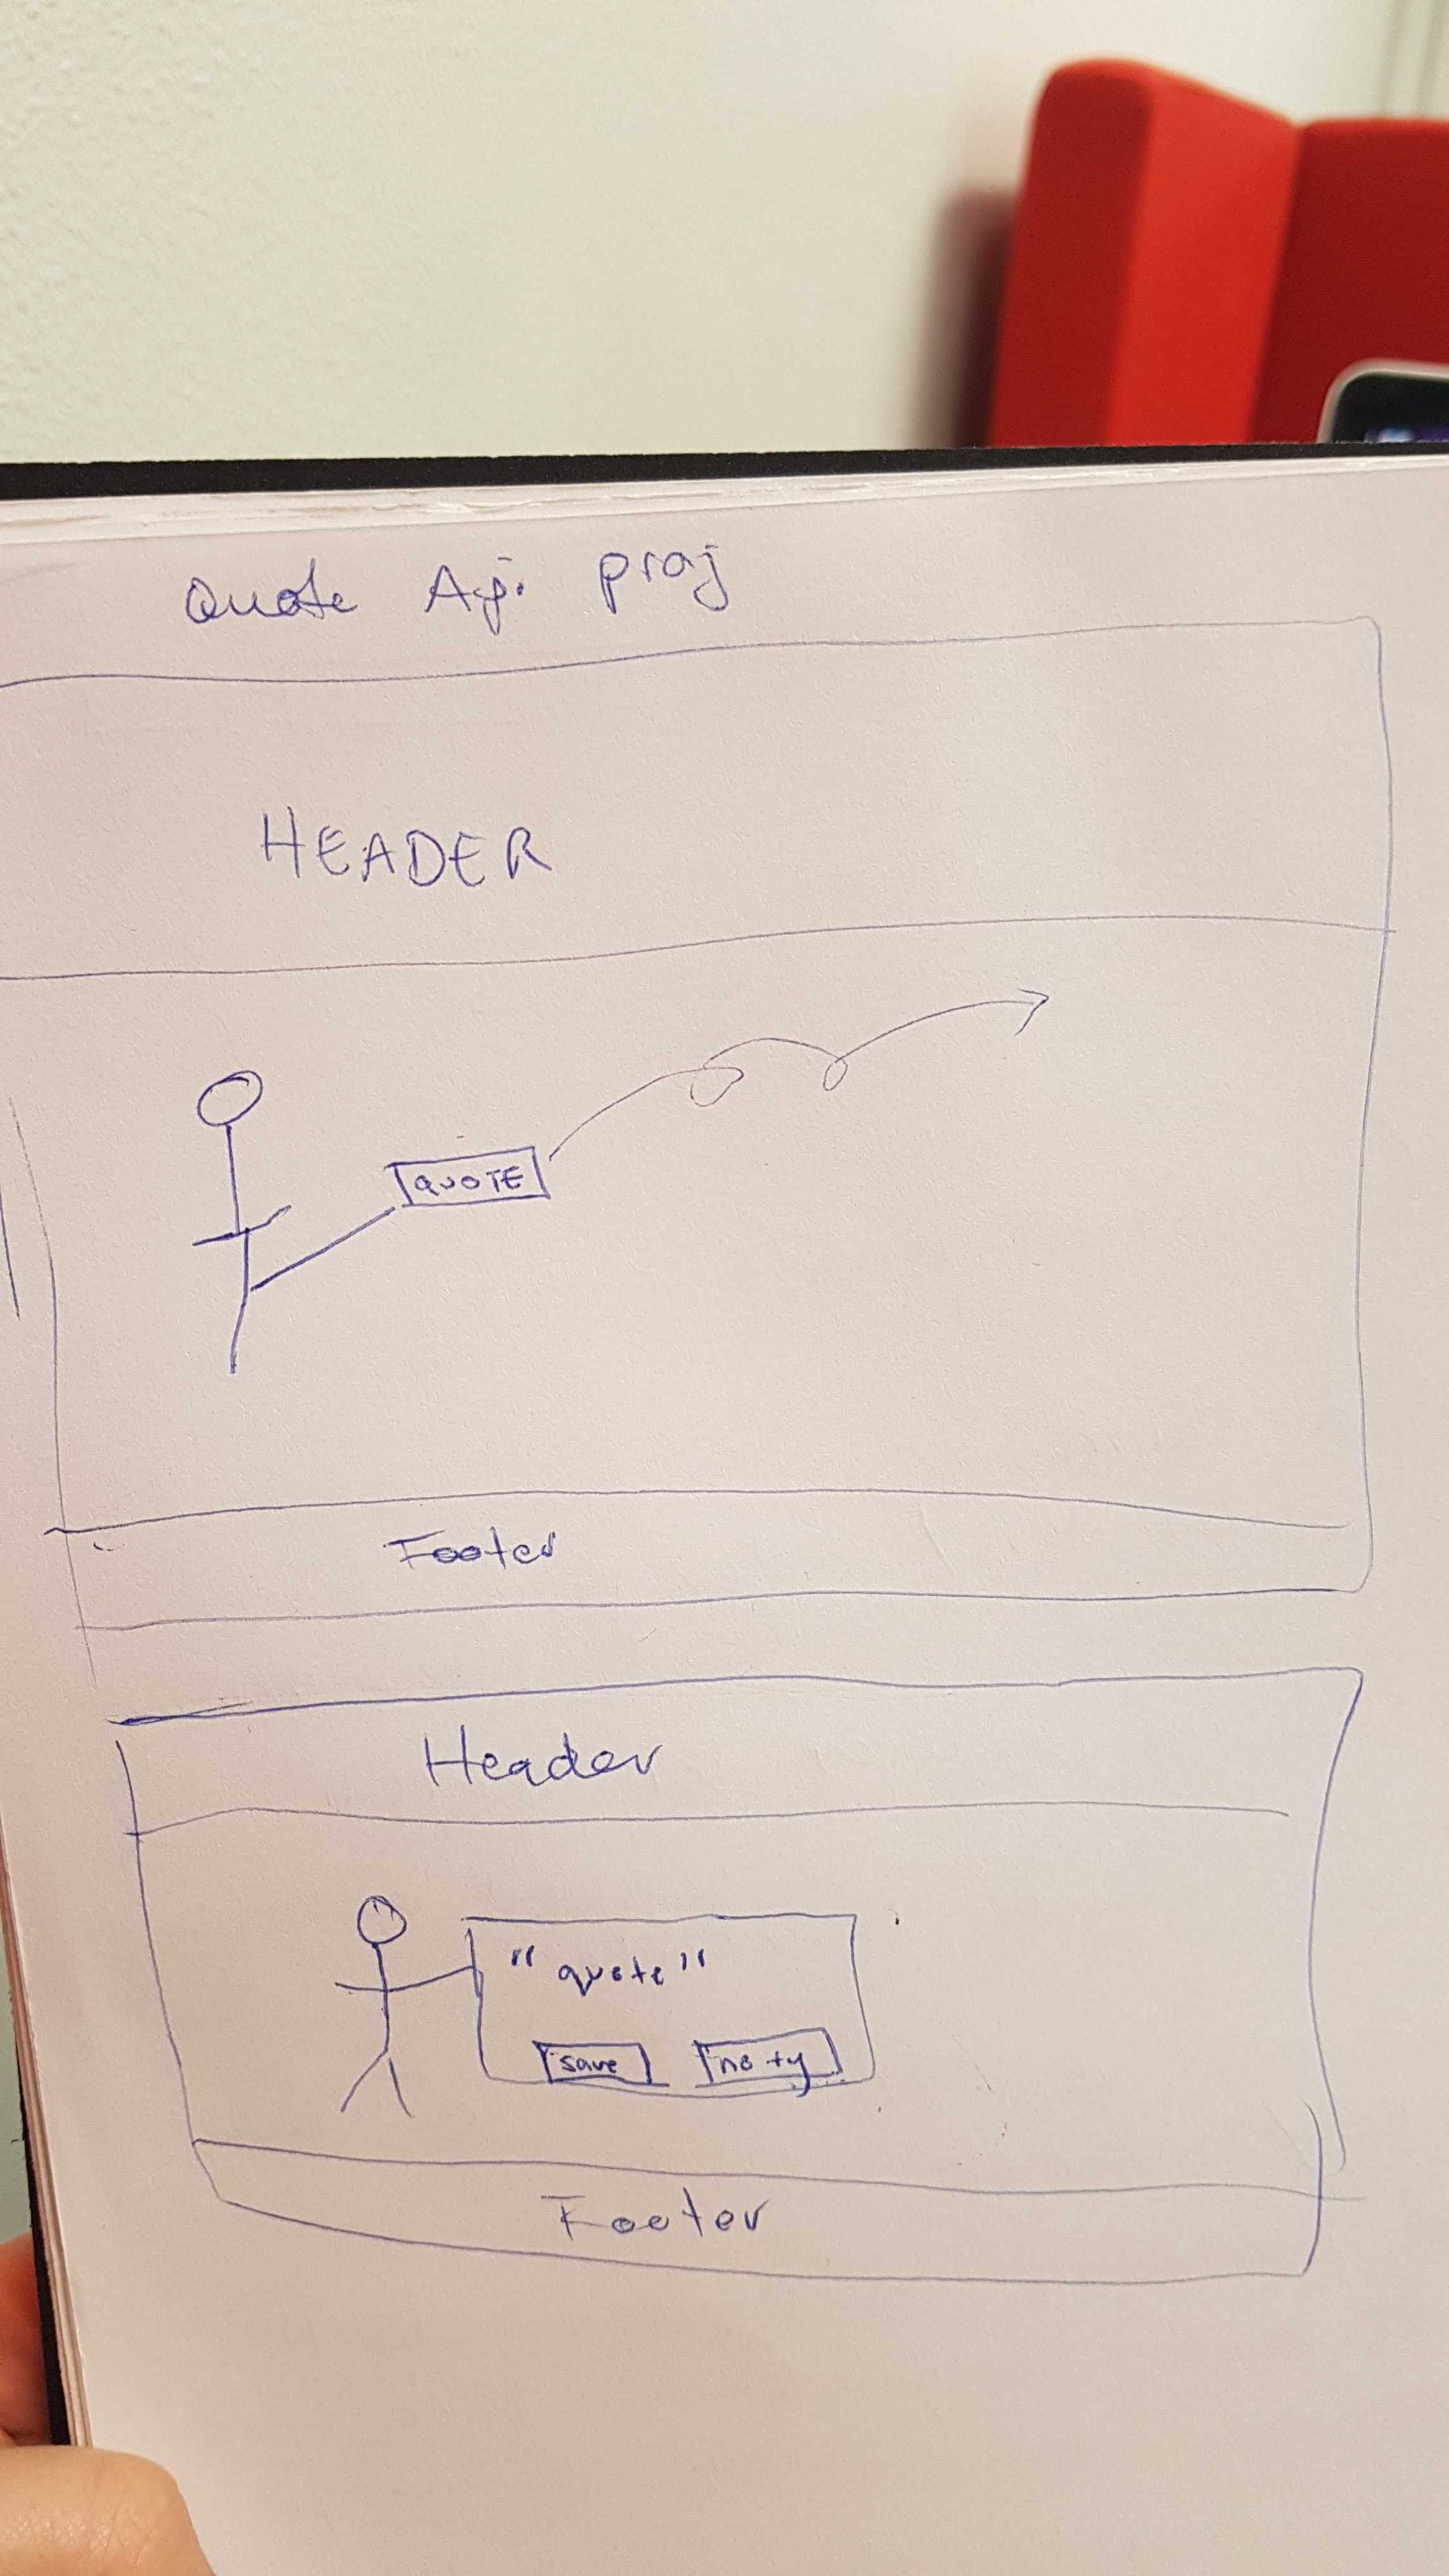 Quote Api proj
HEADER
QUOTE
Footer
Header
"quote"
save no ty
Footer